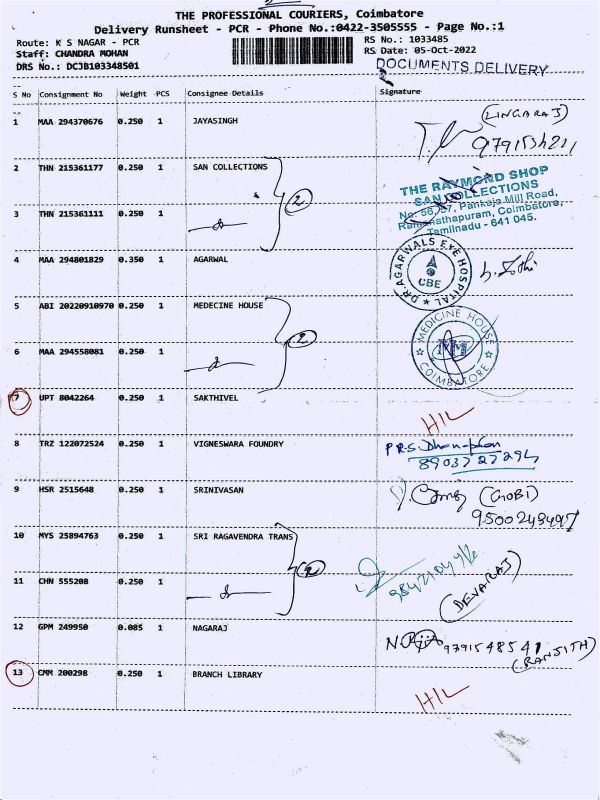 THE PROFESSIONAL COURIERS, Coimbatore
Delivery Runsheet - PCR - Phone No.:0422-3505555 - Page No.:1
Route: K S NAGAR - PCR
RS No.: 1033485
Staff: CHANDRA MOHAN
RS Date: 05-Oct-2022
DRS No.: DCJB103348501
DOCUMENTS DELIVERY
S No Consignment No Weight PCS Consignee Details Signature
1 MAA 294370676 0.250 1 JAYASINGH
(LINGARAJ)
2 THN 215361177 0.250 1 SAN COLLECTIONS
THE RAYMOND SHOP
SAN COLLECTIONS
No. 56, 57, Pankaja Mill Road,
Ramanathapuram, Coimbatore,
Tamilnadu - 641 045.
2
3 THN 215361111 0.250 1
4 MAA 294801829 0.350 1 AGARWAL
DR.AGARWALS EYE HOSPITAL
CBE
5 ABI 20220910970 0.250 1 MEDECINE HOUSE
MEDICINE HOUSE
COIMBATORE
2
6 MAA 294558081 0.250 1
7 UPT 8042264 0.250 1 SAKTHIVEL
H/L
8 TRZ 122072524 0.250 1 VIGNESWARA FOUNDRY
P.R.S.
89037 27294
9 HSR 2515648 0.250 1 SRINIVASAN
(GOBI)
10 MYS 25894763 0.250 1 SRI RAGAVENDRA TRANS
11 CHN 555208 0.250 1
(DEVARAJ)
12 GPM 249950 0.085 1 NAGARAJ
9791548541
(RANJITH)
13 CMM 200298 0.250 1 BRANCH LIBRARY
H/L